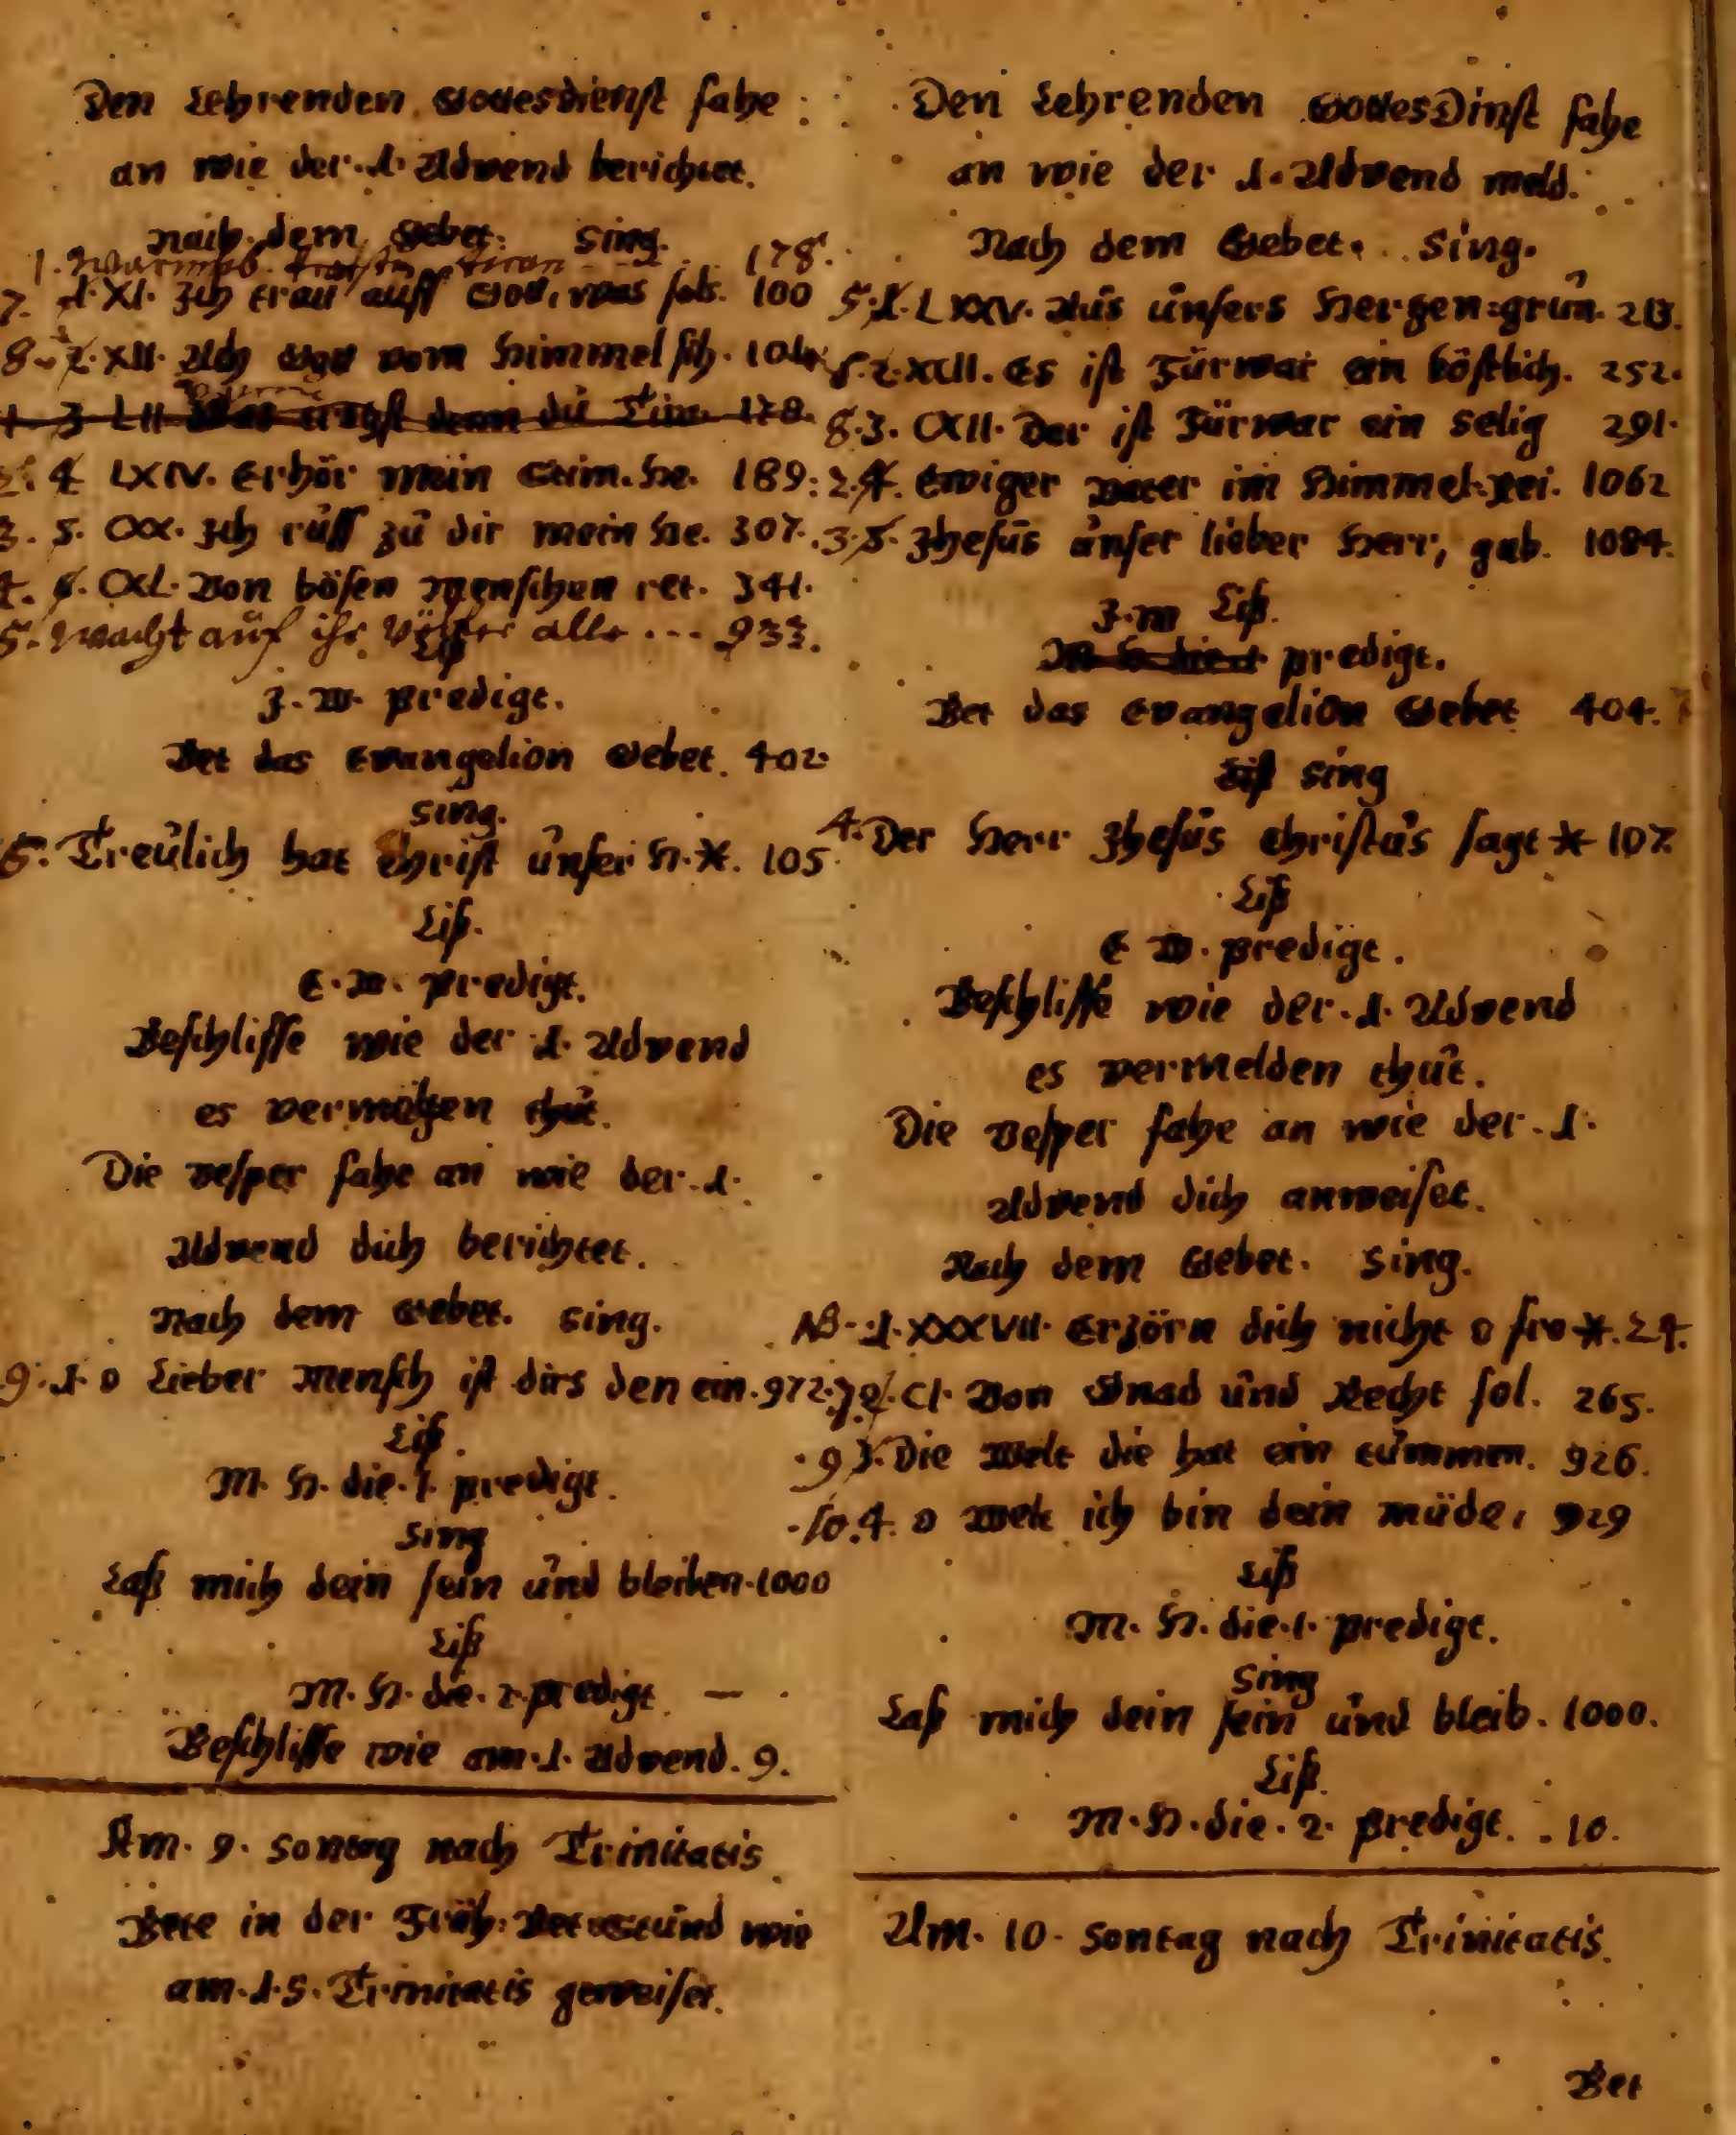 Den Lehrenden Gottesdienst fahe
an wie der .1. Advend berichtet.
nach dem Gebet. Sing.
1. 178.
7. 1. XI. Ich trau auff Gott, was sols. 100
8. 2. XII. Ach Gott vom Himmel sih. 104
1 3 LII denn du Tir. 178.
2. 4 LXIV. Erhör mein Stim. He. 189.
3. 5. CXX. Ich rüff zů dir mein He. 307.
4. 6. CXL. Von bösen Menschen ret. 341.
5. Wacht auf ihr Völker alle ... 933.
Liß
Z. W. Predigt.
Bet das Evangelion Gebet. 402.
Sing.
6. Treülich hat Christ ůnser H. *. 105
Liß.
E. W. Predigt.
Beschlisse wie der .1. Advend
es vermelden thůt.
Die Vesper fahe an wie der .1.
Advend dich berichtet.
Nach dem Gebet. Sing.
9. 1. O Lieber Mensch ist dirs den ein. 972.
Liß.
M. H. die .1. predigt.
Sing
Laß mich dein sein ůnd bleiben. 1000
Liß
M. H. die. 2. predigt —
Beschlisse wie am .1. Advend. 9.
Am. 9. Sontag nach Trinitatis
Bete in der Früh: Bet=Stůnd wie
am .1. S. Trinitatis geweiset.
Den Lehrenden GottesDinst fahe
an wie der .1. Advend meld.
Nach dem Gebet. Sing.
5. 1. LXXV. Aůs ůnsers Hertzen=grůn. 213.
6. 2. XCII. Es ist Fürwar ein köstlich. 252.
8. 3. CXII. Der ist Fürwar ein selig 291.
2. 4. Ewiger Vater im Himmel-rei. 1062
3. 5. Jhesůs ůnser lieber Herr, gab. 1084.
Z. W Liß.
predigt.
Bet das Evangelion Gebet 404.
Liß sing
4. Der Herr Jhesůs Christůs sagt * 107.
Liß
E W. Predigt.
Beschlisse wie der .1. Advend
es vermelden thůt.
Die Vesper fahe an wie der .1.
Advend dich anweiset.
Nach dem Gebet. Sing.
NB. 1. XXXVII. Erzörn dich nicht o fro *. 24.
7. 2. CI. Von Gnad ůnd Recht sol. 265.
9 3. Die Welt die hat ein tůmmen. 926.
10. 4. O Welt ich bin dein müde, 929
Liß
M. H. die .1. predigt.
Sing
Laß mich dein sein ůnd bleib. 1000.
Liß.
M. H. die. 2. Predigt. . 10.
Am. 10. Sontag nach Trinitatis.
Bet